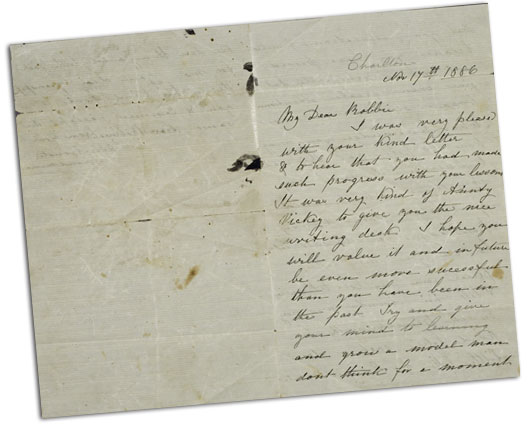 Charlton
Nov 17th 1886
My Dear Bobbie
I was very pleased
with your kind letter
& to hear that you had made
such progress with your lessons
It was very kind of Aunty
Vickey to give you the nice
writing desk I hope you
will value it and in future
be even more sucessful
than you have been in
the past Try and give
your mind to learning
and grow a model man
dont think for a moment